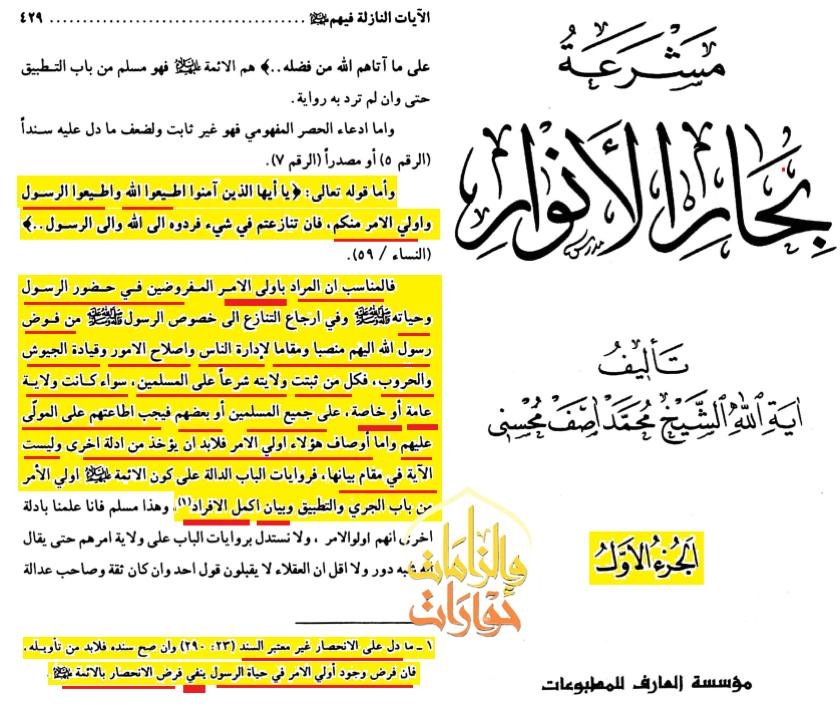 الآيات النازلة فيهم ﷺ ........................................ ٤٢٩
على ما آتاهم الله من فضله..﴾ هم الائمة عليهم السلام فهو مسلم من باب التطبيق
حتى وان لم ترد به رواية.
واما ادعاء الحصر المفهومي فهو غير ثابت ولضعف ما دل عليه سنداً
(الرقم ٥) أو مصدراً (الرقم ٧).
وأما قوله تعالى: ﴿يا أيها الذين آمنوا اطيعوا الله واطيعوا الرسول
واولي الامر منكم، فان تنازعتم في شيء فردوه الى الله والى الرسول..﴾
(النساء / ٥٩).
فالمناسب ان المراد باولى الامر المفروضين في حضور الرسول
وحياته ﷺ وفي ارجاع التنازع الى خصوص الرسول ﷺ من فوض
رسول الله اليهم منصبا ومقاما لإدارة الناس واصلاح الامور وقيادة الجيوش
والحروب، فكل من ثبتت ولايته شرعاً على المسلمين، سواء كانت ولاية
عامة أو خاصة، على جميع المسلمين أو بعضهم فيجب اطاعتهم على المولّى
عليهم واما أوصاف هؤلاء اولي الامر فلابد ان يؤخذ من ادلة اخرى وليست
الآية في مقام بيانها، فروايات الباب الدالة على كون الائمة عليهم السلام اولي الأمر
من باب الجري والتطبيق وبيان اكمل الافراد(١)، وهذا مسلم فانا علمنا بادلة
اخرى انهم اولوالامر، ولا نستدل بروايات الباب على ولاية امرهم حتى يقال
انه شبه دور ولا اقل ان العقلاء لا يقبلون قول احد وان كان ثقة وصاحب عدالة
١ ـ ما دل على الانحصار غير معتبر السند (٢٣: ٢٩٠) وان صح سنده فلابد من تأويله.
فان فرض وجود أولي الامر في حياة الرسول ينفي فرض الانحصار بالائمة عليهم السلام.
مَشرَعَةُ
بِحَارِ الأَنوَارِ
مدرس
تَأليفُ
آيَةِ اللهِ الشَّيخ مُحَمَّد آصَف مُحسِنِي
الجُزءُ الأَوَّلُ
مؤسسة العارف للمطبوعات
حوارات
والزامات